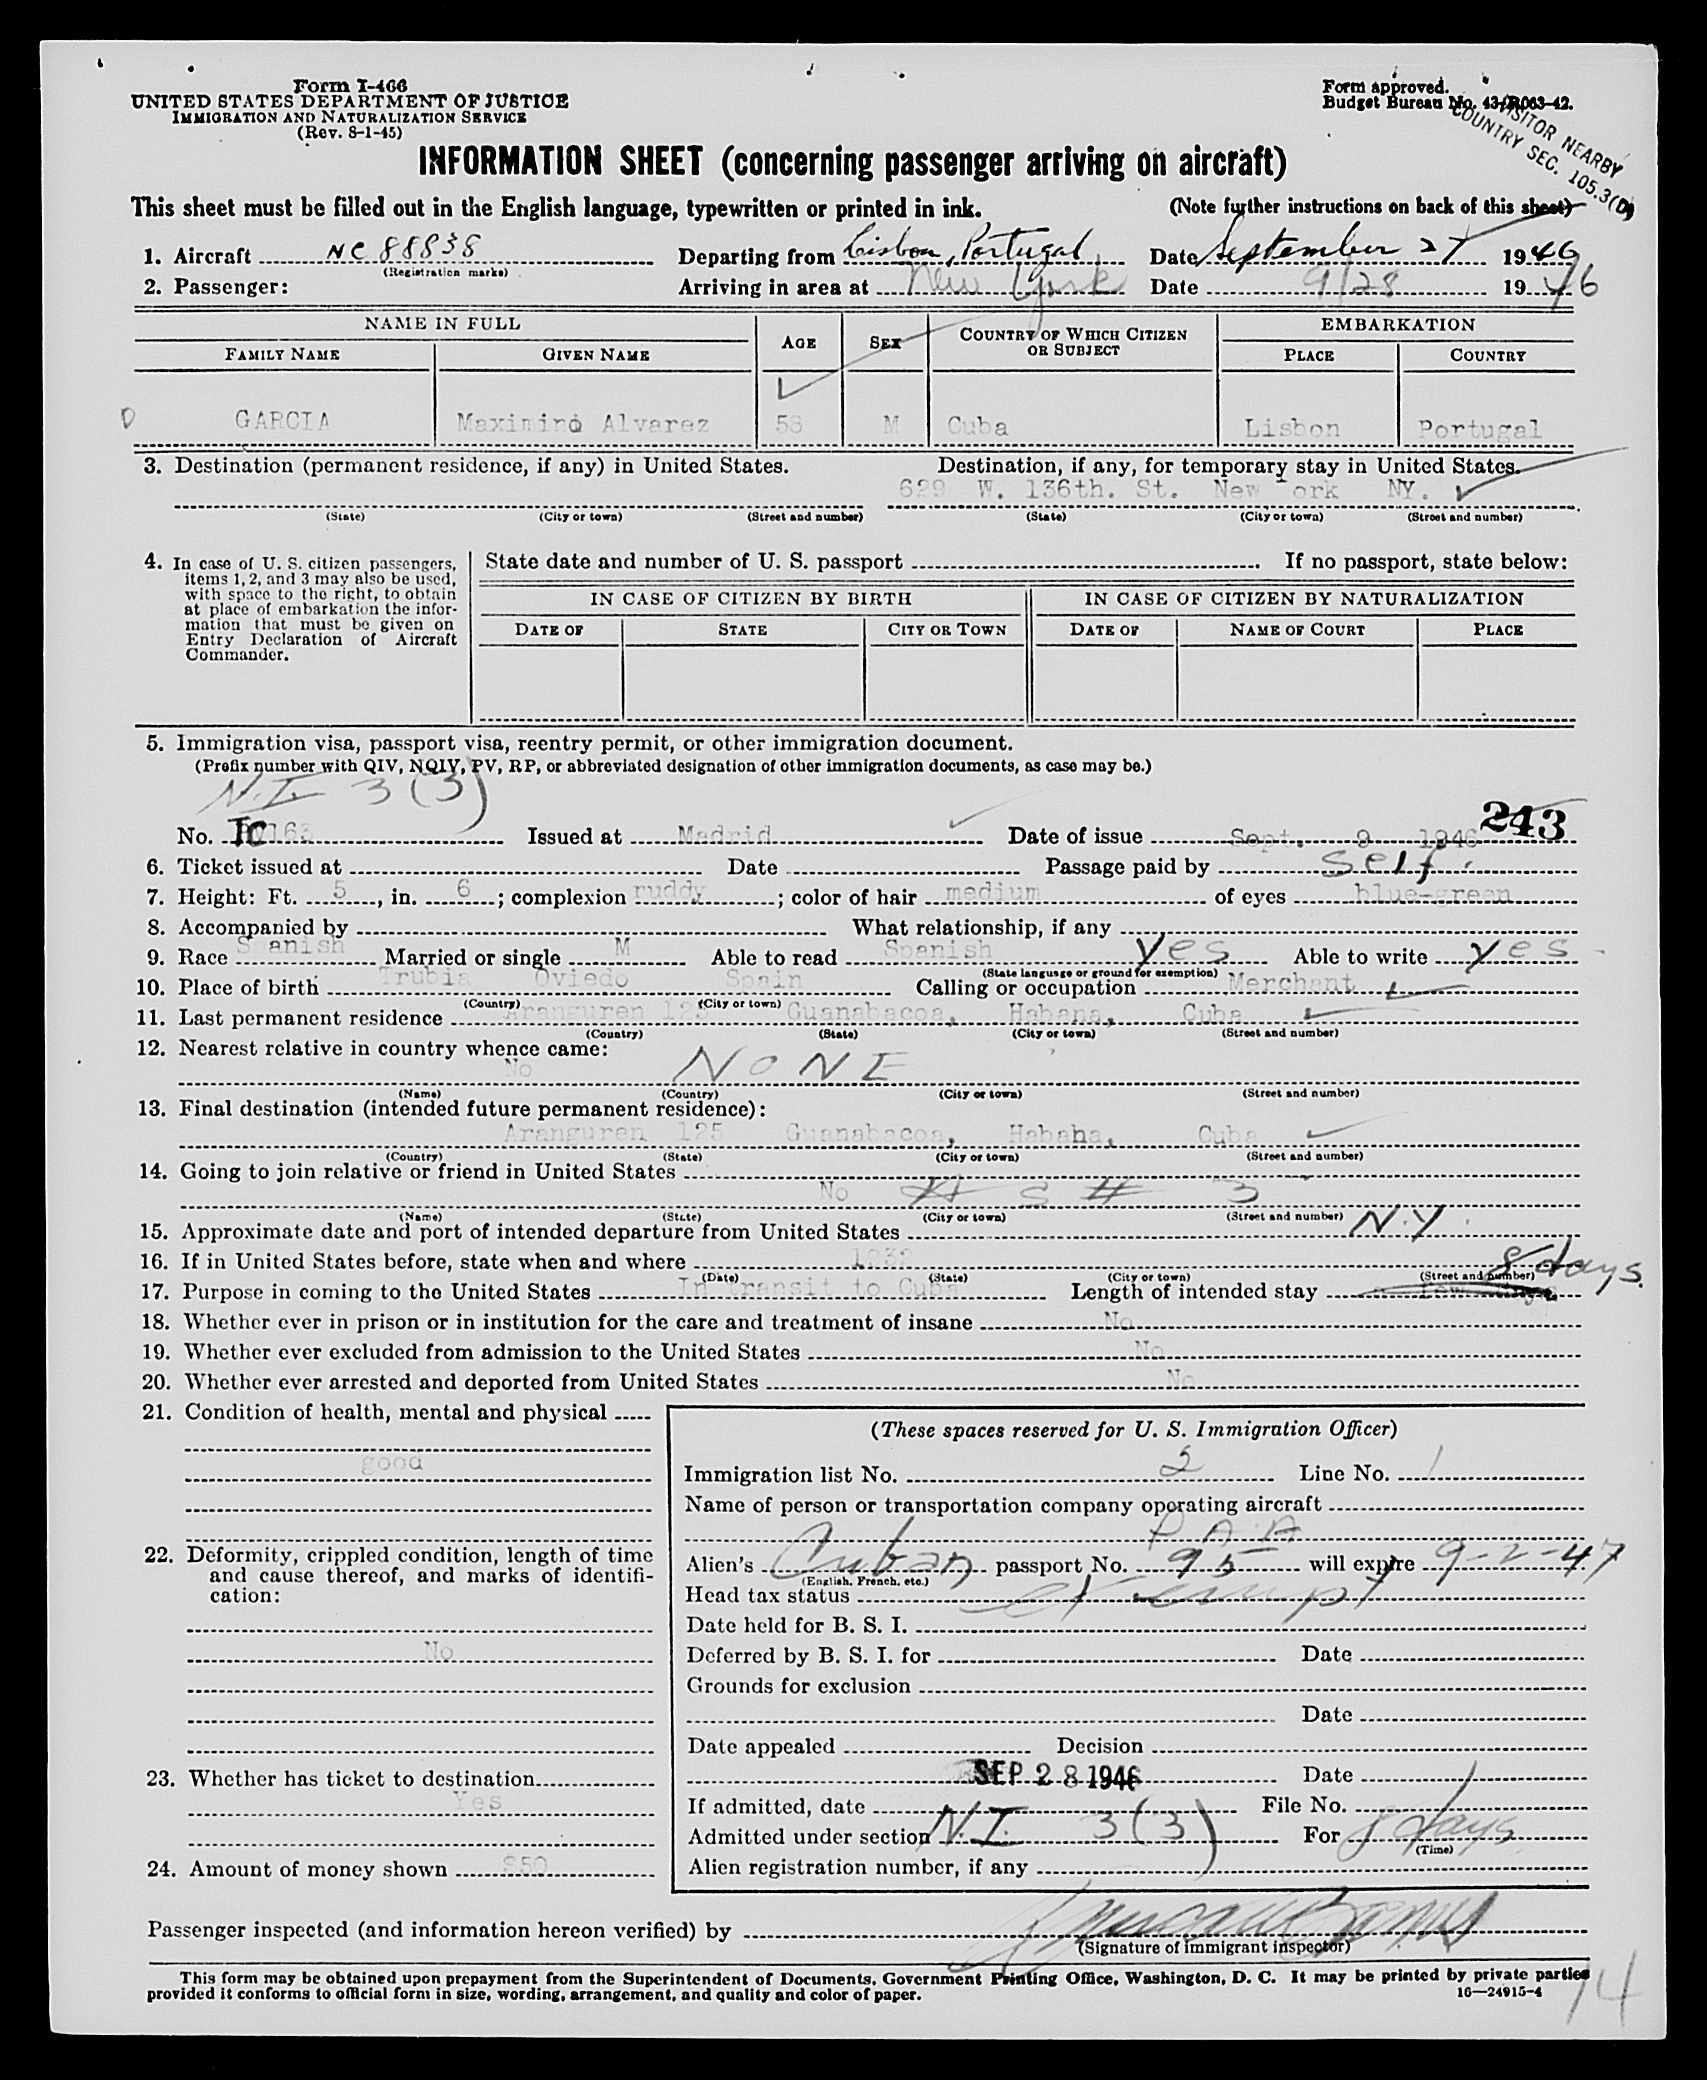 Form I-466
UNITED STATES DEPARTMENT OF JUSTICE
IMMIGRATION AND NATURALIZATION SERVICE
(Rev. 8-1-45)
Form approved.
Budget Bureau No. 43-R063-42.
VISITOR NEARBY
COUNTRY SEC. 105.3(D)
INFORMATION SHEET (concerning passenger arriving on aircraft)
This sheet must be filled out in the English language, typewritten or printed in ink. (Note further instructions on back of this sheet)
1. Aircraft NC 88838 Departing from Lisbon, Portugal Date September 27 1946
(Registration marks)
2. Passenger: Arriving in area at New York Date 9/28 1946
NAME IN FULL AGE SEX COUNTRY OF WHICH CITIZEN OR SUBJECT EMBARKATION
FAMILY NAME GIVEN NAME PLACE COUNTRY
GARCIA Maximino Alvarez 58 M Cuba Lisbon Portugal
3. Destination (permanent residence, if any) in United States. Destination, if any, for temporary stay in United States.
629 W. 136th. St. New ork NY.
(State) (City or town) (Street and number) (State) (City or town) (Street and number)
4. In case of U. S. citizen passengers, items 1, 2, and 3 may also be used, with space to the right, to obtain at place of embarkation the information that must be given on Entry Declaration of Aircraft Commander.
State date and number of U. S. passport If no passport, state below:
IN CASE OF CITIZEN BY BIRTH IN CASE OF CITIZEN BY NATURALIZATION
DATE OF STATE CITY OR TOWN DATE OF NAME OF COURT PLACE
5. Immigration visa, passport visa, reentry permit, or other immigration document.
(Prefix number with QIV, NQIV, PV, RP, or abbreviated designation of other immigration documents, as case may be.)
N.I. 3 (3)
243
No. TC 163 Issued at Madrid Date of issue Sept. 9 1946
6. Ticket issued at Date Passage paid by Self.
7. Height: Ft. 5, in. 6; complexion ruddy; color of hair medium of eyes blue-green
8. Accompanied by What relationship, if any
9. Race S anish Married or single M Able to read Spanish yes Able to write yes
(State language or ground for exemption)
10. Place of birth Trubia Oviedo Spain Calling or occupation Merchant
(Country) (City or town)
11. Last permanent residence Aranguren 125 Guanabacoa, Habana, Cuba
(Country) (State) (City or town) (Street and number)
12. Nearest relative in country whence came:
No NONE
(Name) (Country) (City or town) (Street and number)
13. Final destination (intended future permanent residence):
Aranguren 125 Guanabacoa, Habana, Cuba
(Country) (State) (City or town) (Street and number)
14. Going to join relative or friend in United States
No # 3
(Name) (State) (City or town) (Street and number)
15. Approximate date and port of intended departure from United States N.Y.
16. If in United States before, state when and where 1932
(Date) (State) (City or town) (Street and number)
17. Purpose in coming to the United States In transit to Cuba Length of intended stay 8 days.
18. Whether ever in prison or in institution for the care and treatment of insane No
19. Whether ever excluded from admission to the United States No
20. Whether ever arrested and deported from United States No
21. Condition of health, mental and physical
good
22. Deformity, crippled condition, length of time and cause thereof, and marks of identification:
No
23. Whether has ticket to destination
Yes
24. Amount of money shown $50
(These spaces reserved for U. S. Immigration Officer)
Immigration list No. 2 Line No. 1
Name of person or transportation company operating aircraft
P A A
Alien's Cuban passport No. 95 will expire 9-2-47
(English, French, etc.)
Head tax status exempt
Date held for B. S. I.
Deferred by B. S. I. for Date
Grounds for exclusion
Date
Date appealed Decision
SEP 28 1946 Date
If admitted, date File No.
Admitted under section N.I. 3 (3) For 8 days
(Time)
Alien registration number, if any
Passenger inspected (and information hereon verified) by
(Signature of immigrant inspector)
This form may be obtained upon prepayment from the Superintendent of Documents, Government Printing Office, Washington, D. C. It may be printed by private parties
provided it conforms to official form in size, wording, arrangement, and quality and color of paper. 16—24915-4
14